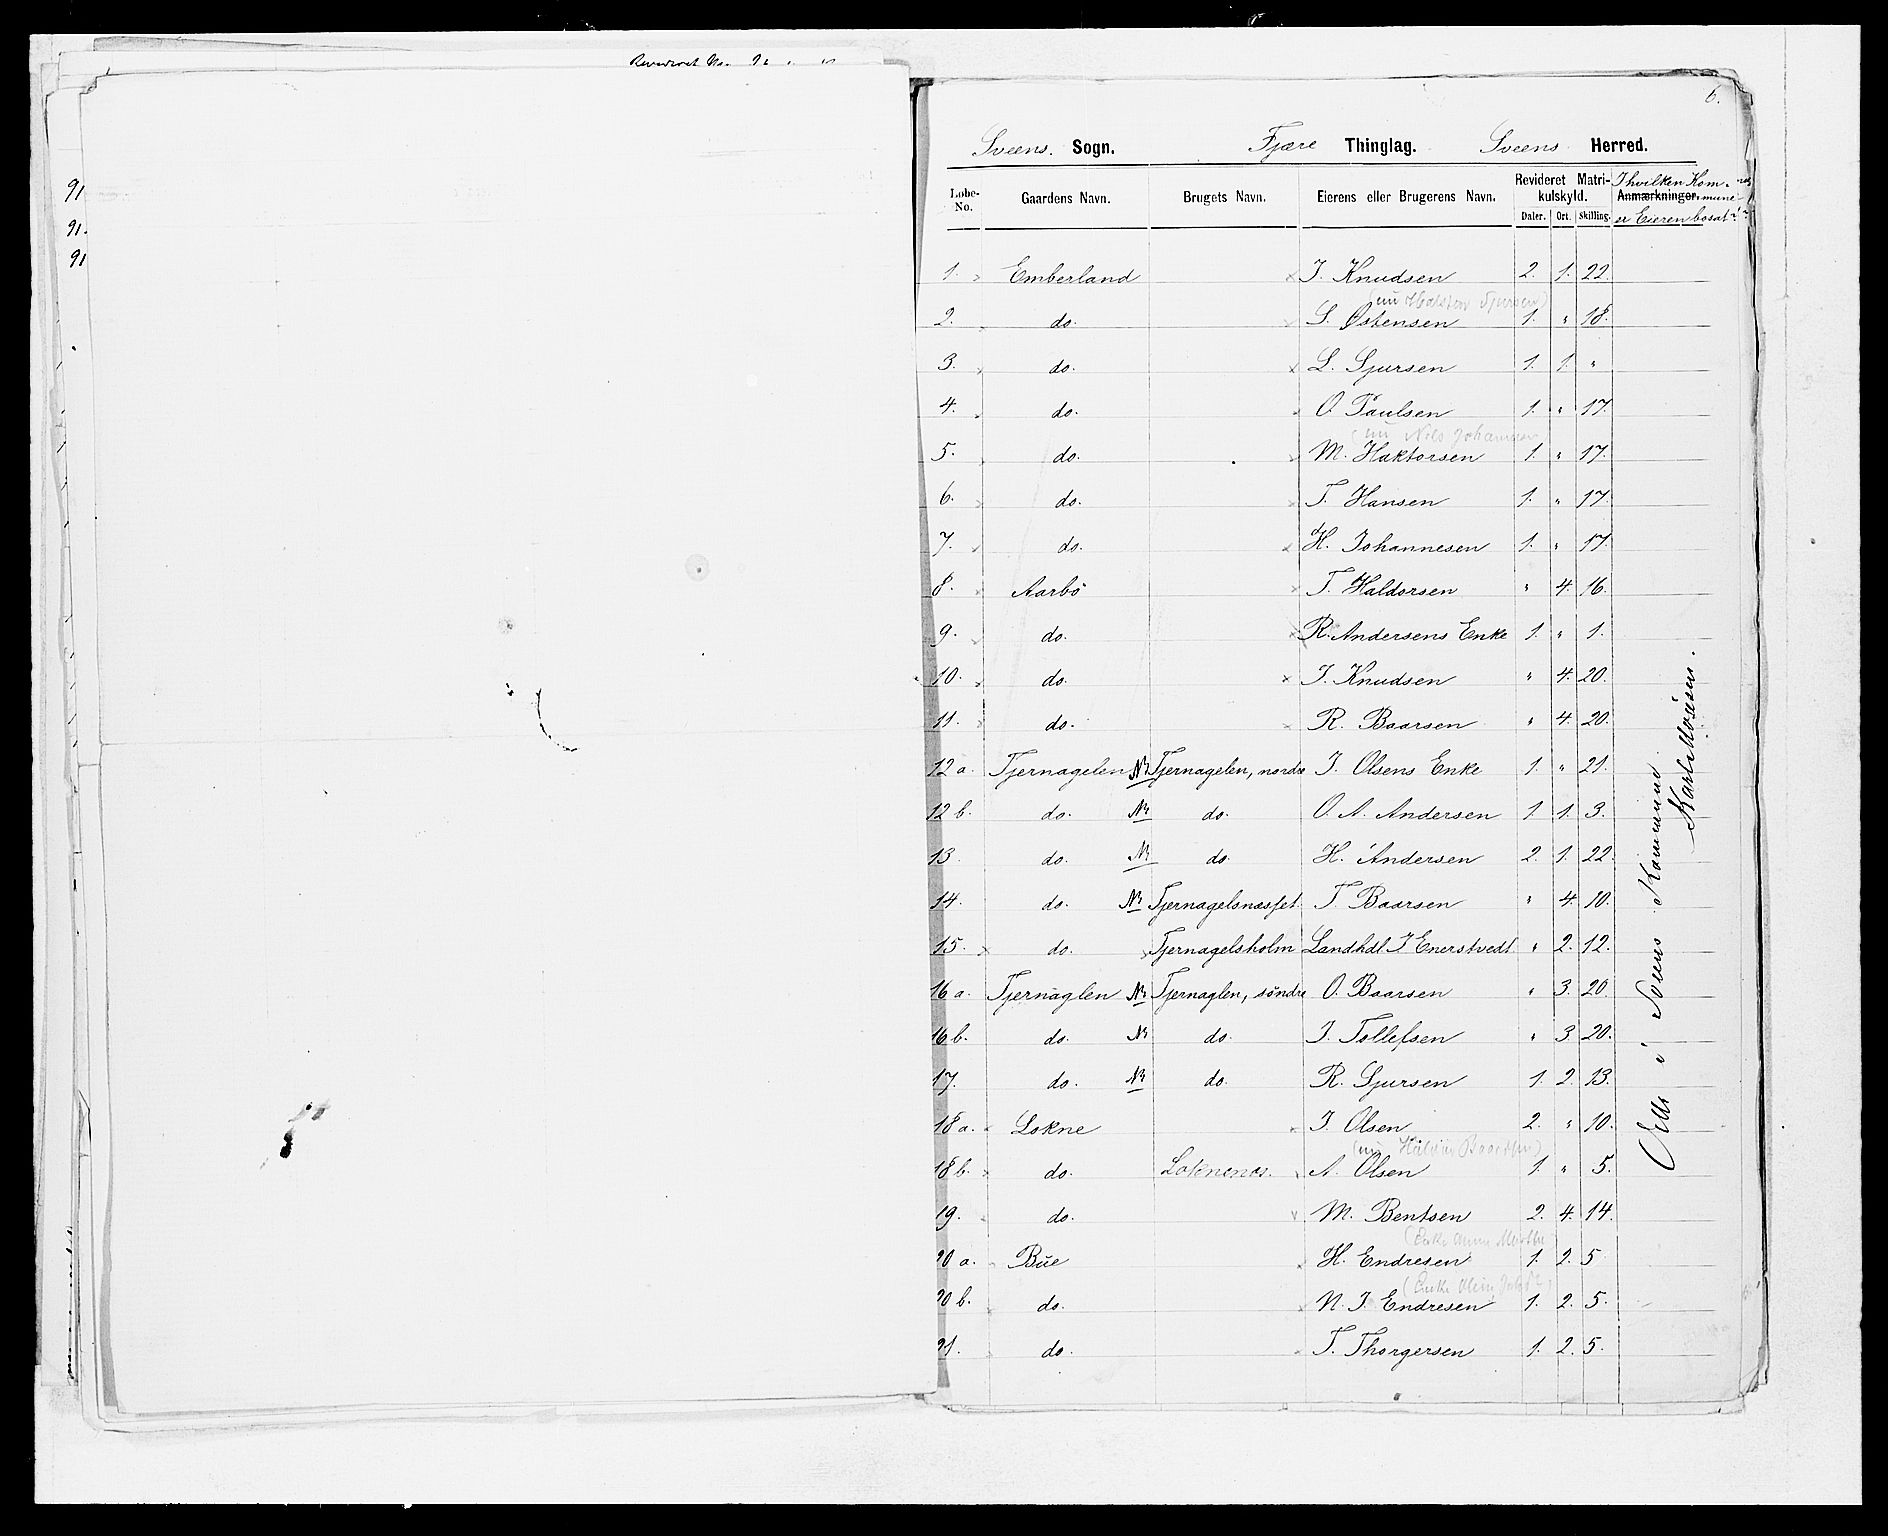 91
91.
91
6.
Sveens Sogn. Fjære Thinglag. Sveens Herred.
Løbe-No. Gaardens Navn. Brugets Navn. Eierens eller Brugerens Navn. Revideret Matrikulskyld. Daler. Ort. Skilling. Anmærkninger. I hvilken Kommune er Eieren bosat?
1. Emberland J. Knudsen 2. 1. 22.
2. do. S. Østensen 1. " 18.
3. do. L. Sjursen 1. 1. "
4. do. O. Paulsen 1. " 17.
(nu Nils Johannesen
5. do. M. Haktorsen 1. " 17.
6. do. T. Hansen 1. " 17.
7. do. H. Johannesen 1. " 17.
8. Aarbø T. Haldorsen " 4. 16.
9. do. R. Andersens Enke 1. " 1.
10. do. J. Knudsen " 4. 20.
11. do. R. Baarsen " 4. 20.
12 a. Tjernagelen № Tjernagelen, nordre J. Olsens Enke 1. " 21.
12 b. do. № do. O. A. Andersen 1. 1. 3.
13. do. № do. H. Andersen 2. 1. 22.
14. do. № Tjernagelsnæsset T. Baarsen " 4. 10.
15. do. Tjernagelsholm Landhdl. J Enerstvedt " 2. 12.
16 a. Tjernaglen № Tjernaglen, søndre O. Baarsen " 3. 20.
16 b. do. № do. J. Tollefsen " 3. 20.
17. do. № do. R. Sjursen 1. 2. 13.
18 a. Lokne J. Olsen 2. " 10.
18 b. do. Loknenes. A. Olsen 1. " 5.
19. do. M. Bentsen 2. 4. 14.
20 a. Bue H. Endresen 1. 2. 5
20 b. do. N. J. Endresen 1. 2. 5.
21. do. T. Thorgersen 1. 2. 5.
Alle i Sveens Kommune